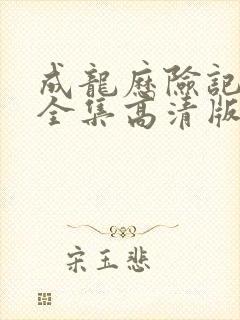 成龍歷險記
全集高清版
宋玉悲